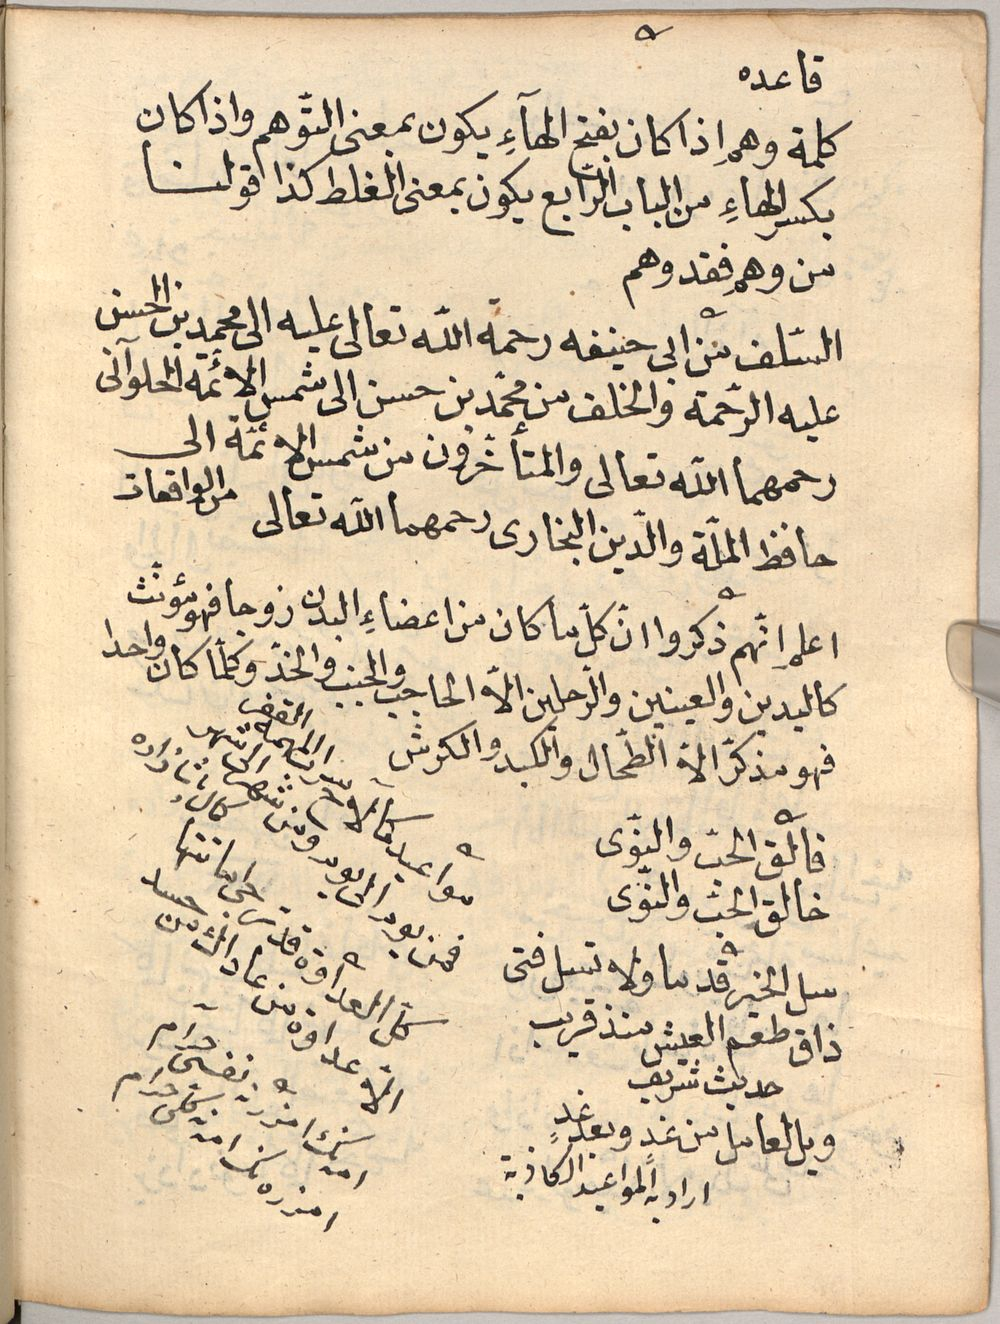 قاعده
كلمة وهم اذا كان بفتح الهآءِ يكون بمعنى التّوهم واذا كان
بكسر الهاءِ من الباب الرّابع يكون بمعنى الغلط كذا قولنا
من وهم فقد وهم
السّلف من ابى حنيفه رحمة اللّه تعالى عليه الى محمد بن الحسن
عليه الرّحمة والخلف من محمّد بن حسن الى شمس الائمّة الحلوآنى
رحمهما اللّه تعالى والمتأخّرون من شمس الائمّة الى
حافظ الملّة والدّين البخارى رحمهما اللّه تعالى من الواقعات
اعلم انّهم ذكروا انّ كلّ ما كان من اعضاءِ البدن زوجا فهو مؤنّث
كاليدين والعينين والرّجلين الاّ الحاجب والجنب والخدّ وكلّما كان واحدا
فهو مذكّر الاّ الطّحال والكبد والكرش
فالق الحبّ والنّوى
خالق الحبّ والنّوى
سل الخير قدما ولا تسل فتى
ذاق طعم العيش منذ قريب
حديث شريف
ويل لعامل من غدٍ وبعد غدٍ
اراد به المواعيد الكاذبة
مواعيد كالاسراب المهمه القفر
فمن يوم الى يوم ومن شهر الى شهر
كلّ العداوة قد ترجى اماتتها
الاّ عداوة من عاداك من حسد